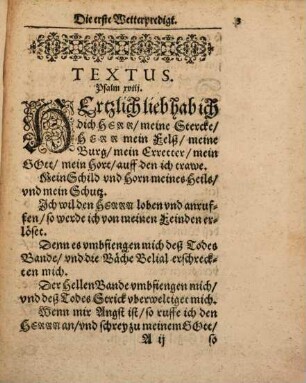 Die erste Wetterpredigt. 3
TEXTUS.
Psalm xviii.
HErtzlich lieb hab ich
dich HERR/ meine Stercke/
HERR mein Felß/ meine
Burg/ mein Erretter/ mein
GOtt/ mein Hort/ auff den ich trawe.
Mein Schild vnd Horn meines Heils/
vnd mein Schutz.
Ich wil den HERRN loben vnd anruf-
fen/ so werde ich von meinen Feinden er-
löset.
Denn es vmbfiengen mich deß Todes
Bande/ vnd die Bäche Belial erschreck-
ten mich.
Der Hellen Bande vmbfiengen mich/
vnd deß Todes Strick vberweltiget mich.
Wenn mir Angst ist/ so ruffe ich den
HERRN an/ vnd schrey zu meinem GOtt/
A ij so